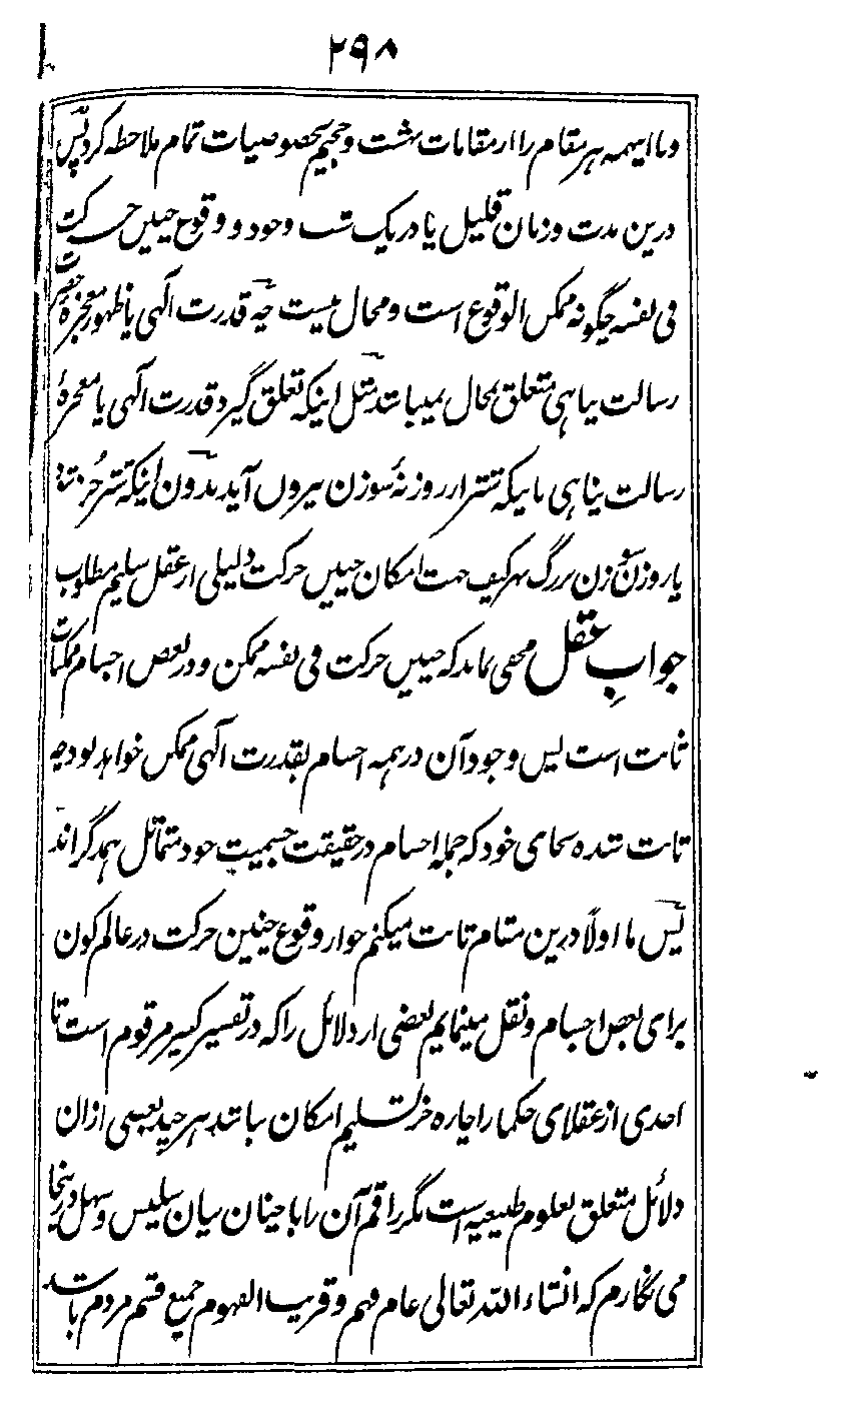 ۲۹۸
وبا اینهمه هر مقام را از مقامات بهشت و جحیم بخصوصیات تمام ملاحظه کرد پس
درین مدت و زمان قلیل یا در یک شب وجود و وقوع چنین حرکت
فی نفسه چگونه ممکن الوقوع است و محال نیست چه قدرت الٓهی یا ظهور معجزهٔ حضرت
رسالت پناهی متعلق بمحال نمیباشد مثل اینکه تعلق گیرد قدرت الٓهی یا معجزهٔ
رسالت پناهی باینکه شتر از روزنهٔ سوزن بیرون آید بدون اینکه شتر خُرد شود
یا روزن سوزن بزرگ بهر کیف جهت امکان چنین حرکت دلیلی از عقل سلیم مطلوب
جوابِ عقل مخفی نماند که چنین حرکت فی نفسه ممکن و در بعض اجسام ممکنات
ثابت است پس وجود آن در همه اجسام بقدرت الٓهی ممکن خواهد بود چه
ثابت شده بجای خود که جمله اجسام در حقیقت جسمیت خود متماثل همدگر اند
پس ما اولًا درین مقام ثابت میکنم جواز وقوع چنین حرکت در عالم کون
برای بعض اجسام و نقل مینمایم بعضی از دلائل را که در تفسیر کبیر مرقوم است تا
احدی از عقلای حکما را چاره جز تسلیم امکان نباشد هر چند بعضی ازان
دلائل متعلق بعلوم طبیعیه است مگر راقم آن را با چنان بیان سلیس و سهل درینجا
می نگارم که انشاء اللّه تعالی عام فهم و قریب الفهوم جمیع قسم مردم باشد